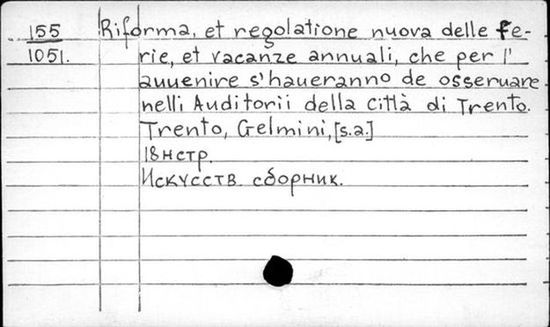 155 Riforma, et regolatione nuova delle fe-
1051. rie, et vacanze annuali, che per l'
auuenire s'haueranno de osseruare
nelli Auditorii della Città di Trento.
Trento, Gelmini, [s.a.]
18 нстр.
Искусств. сборник.